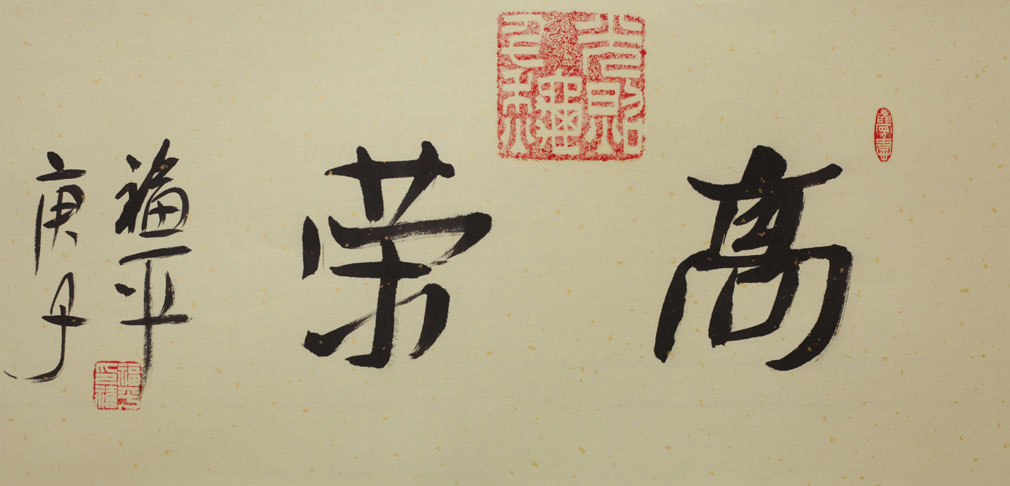 高荣
福平
庚子